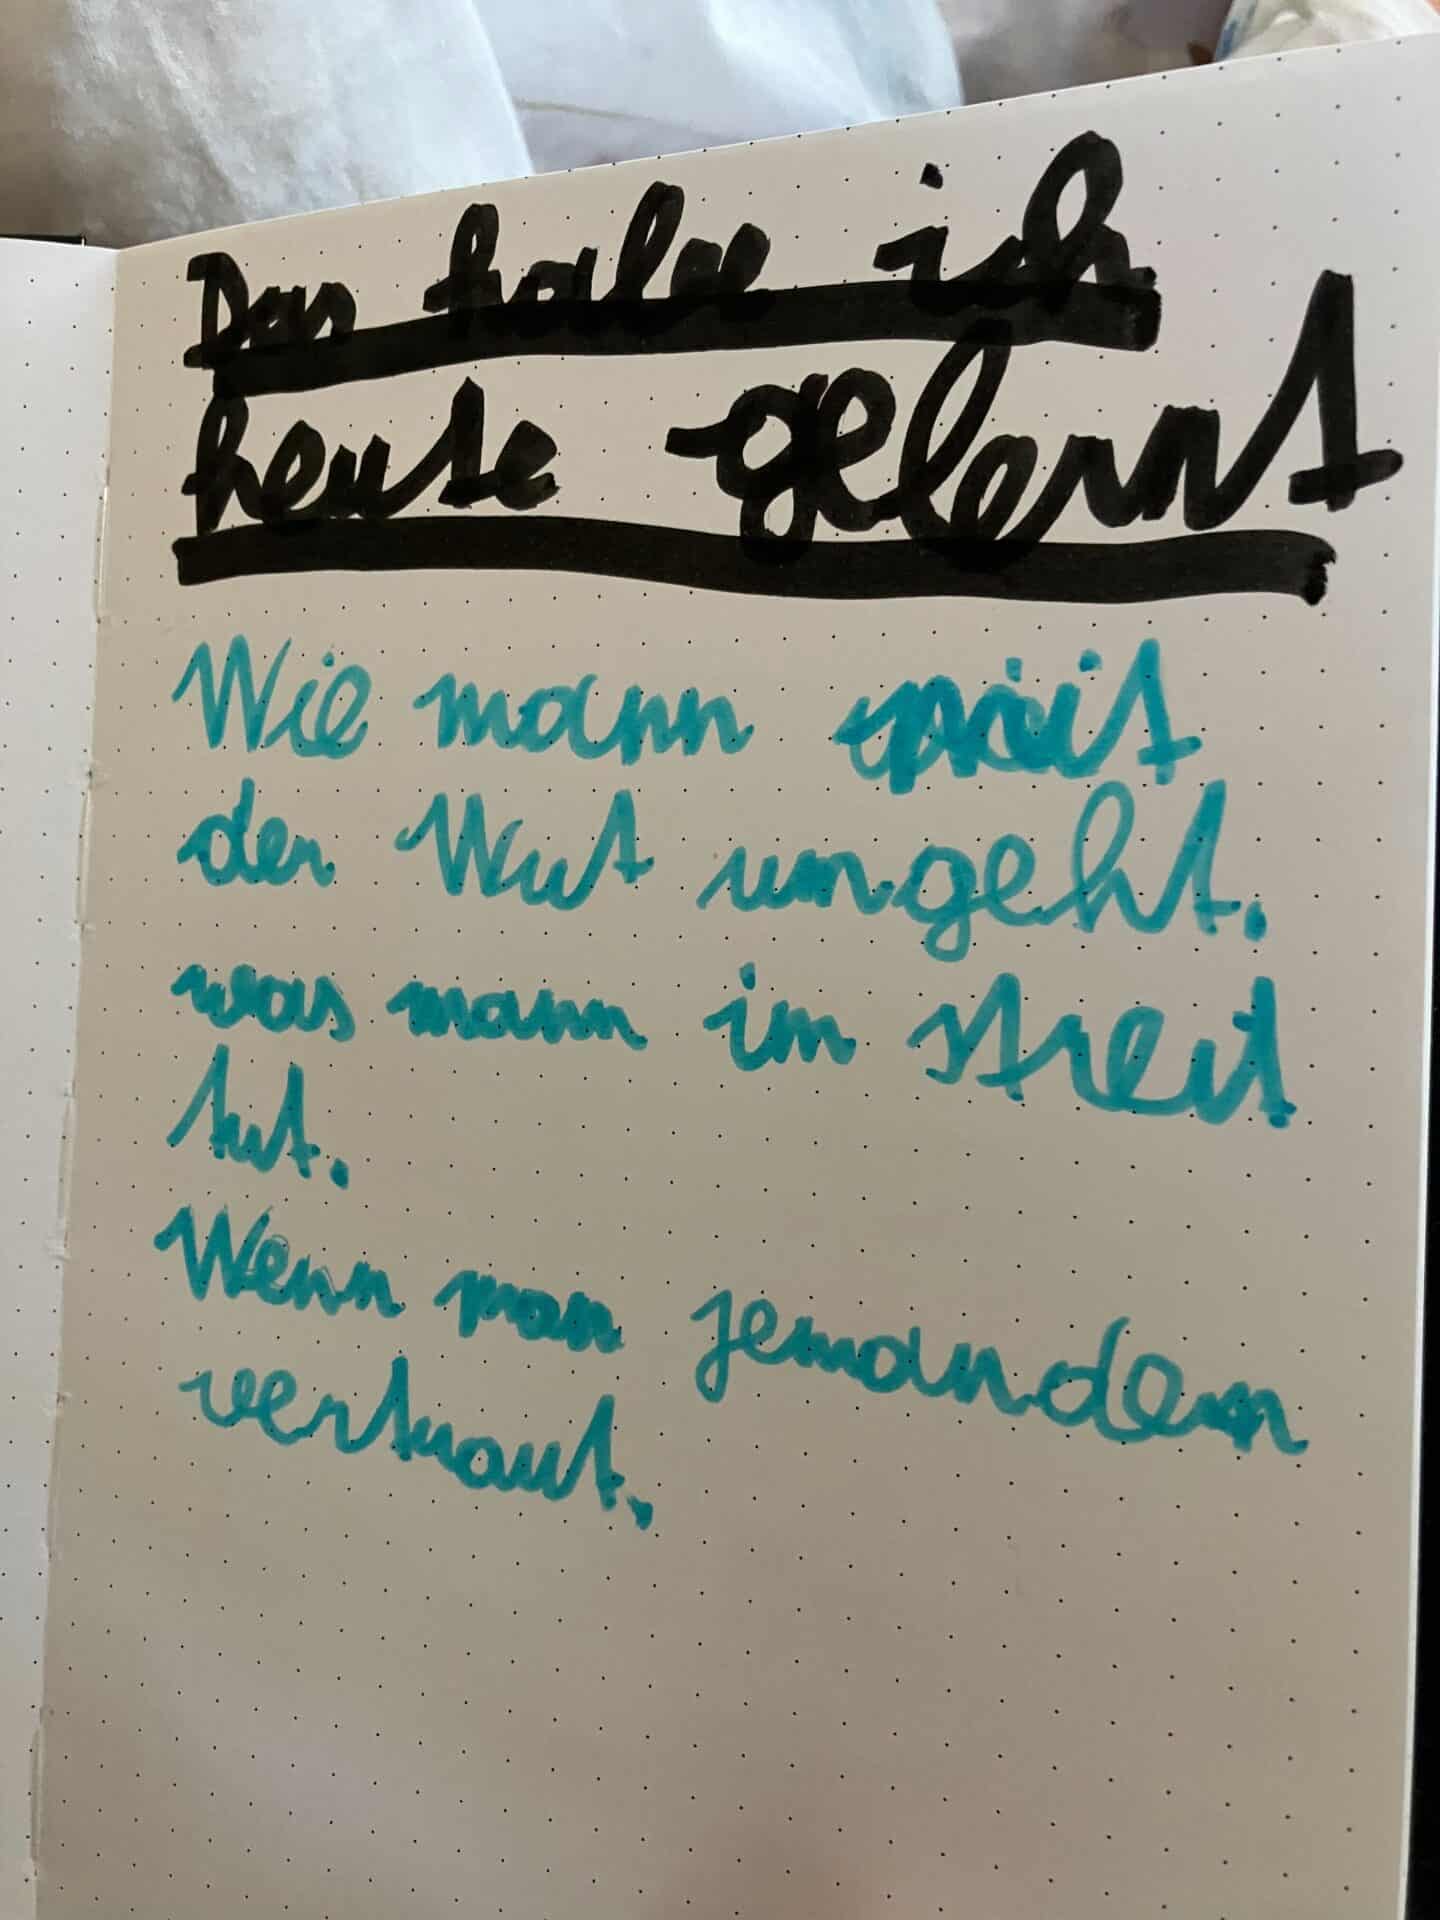 Das habe ich
heute gelernt
Wie mann mit
der Wut umgeht.
was mann im streit
tut.
Wenn man jemanden
vertraut.